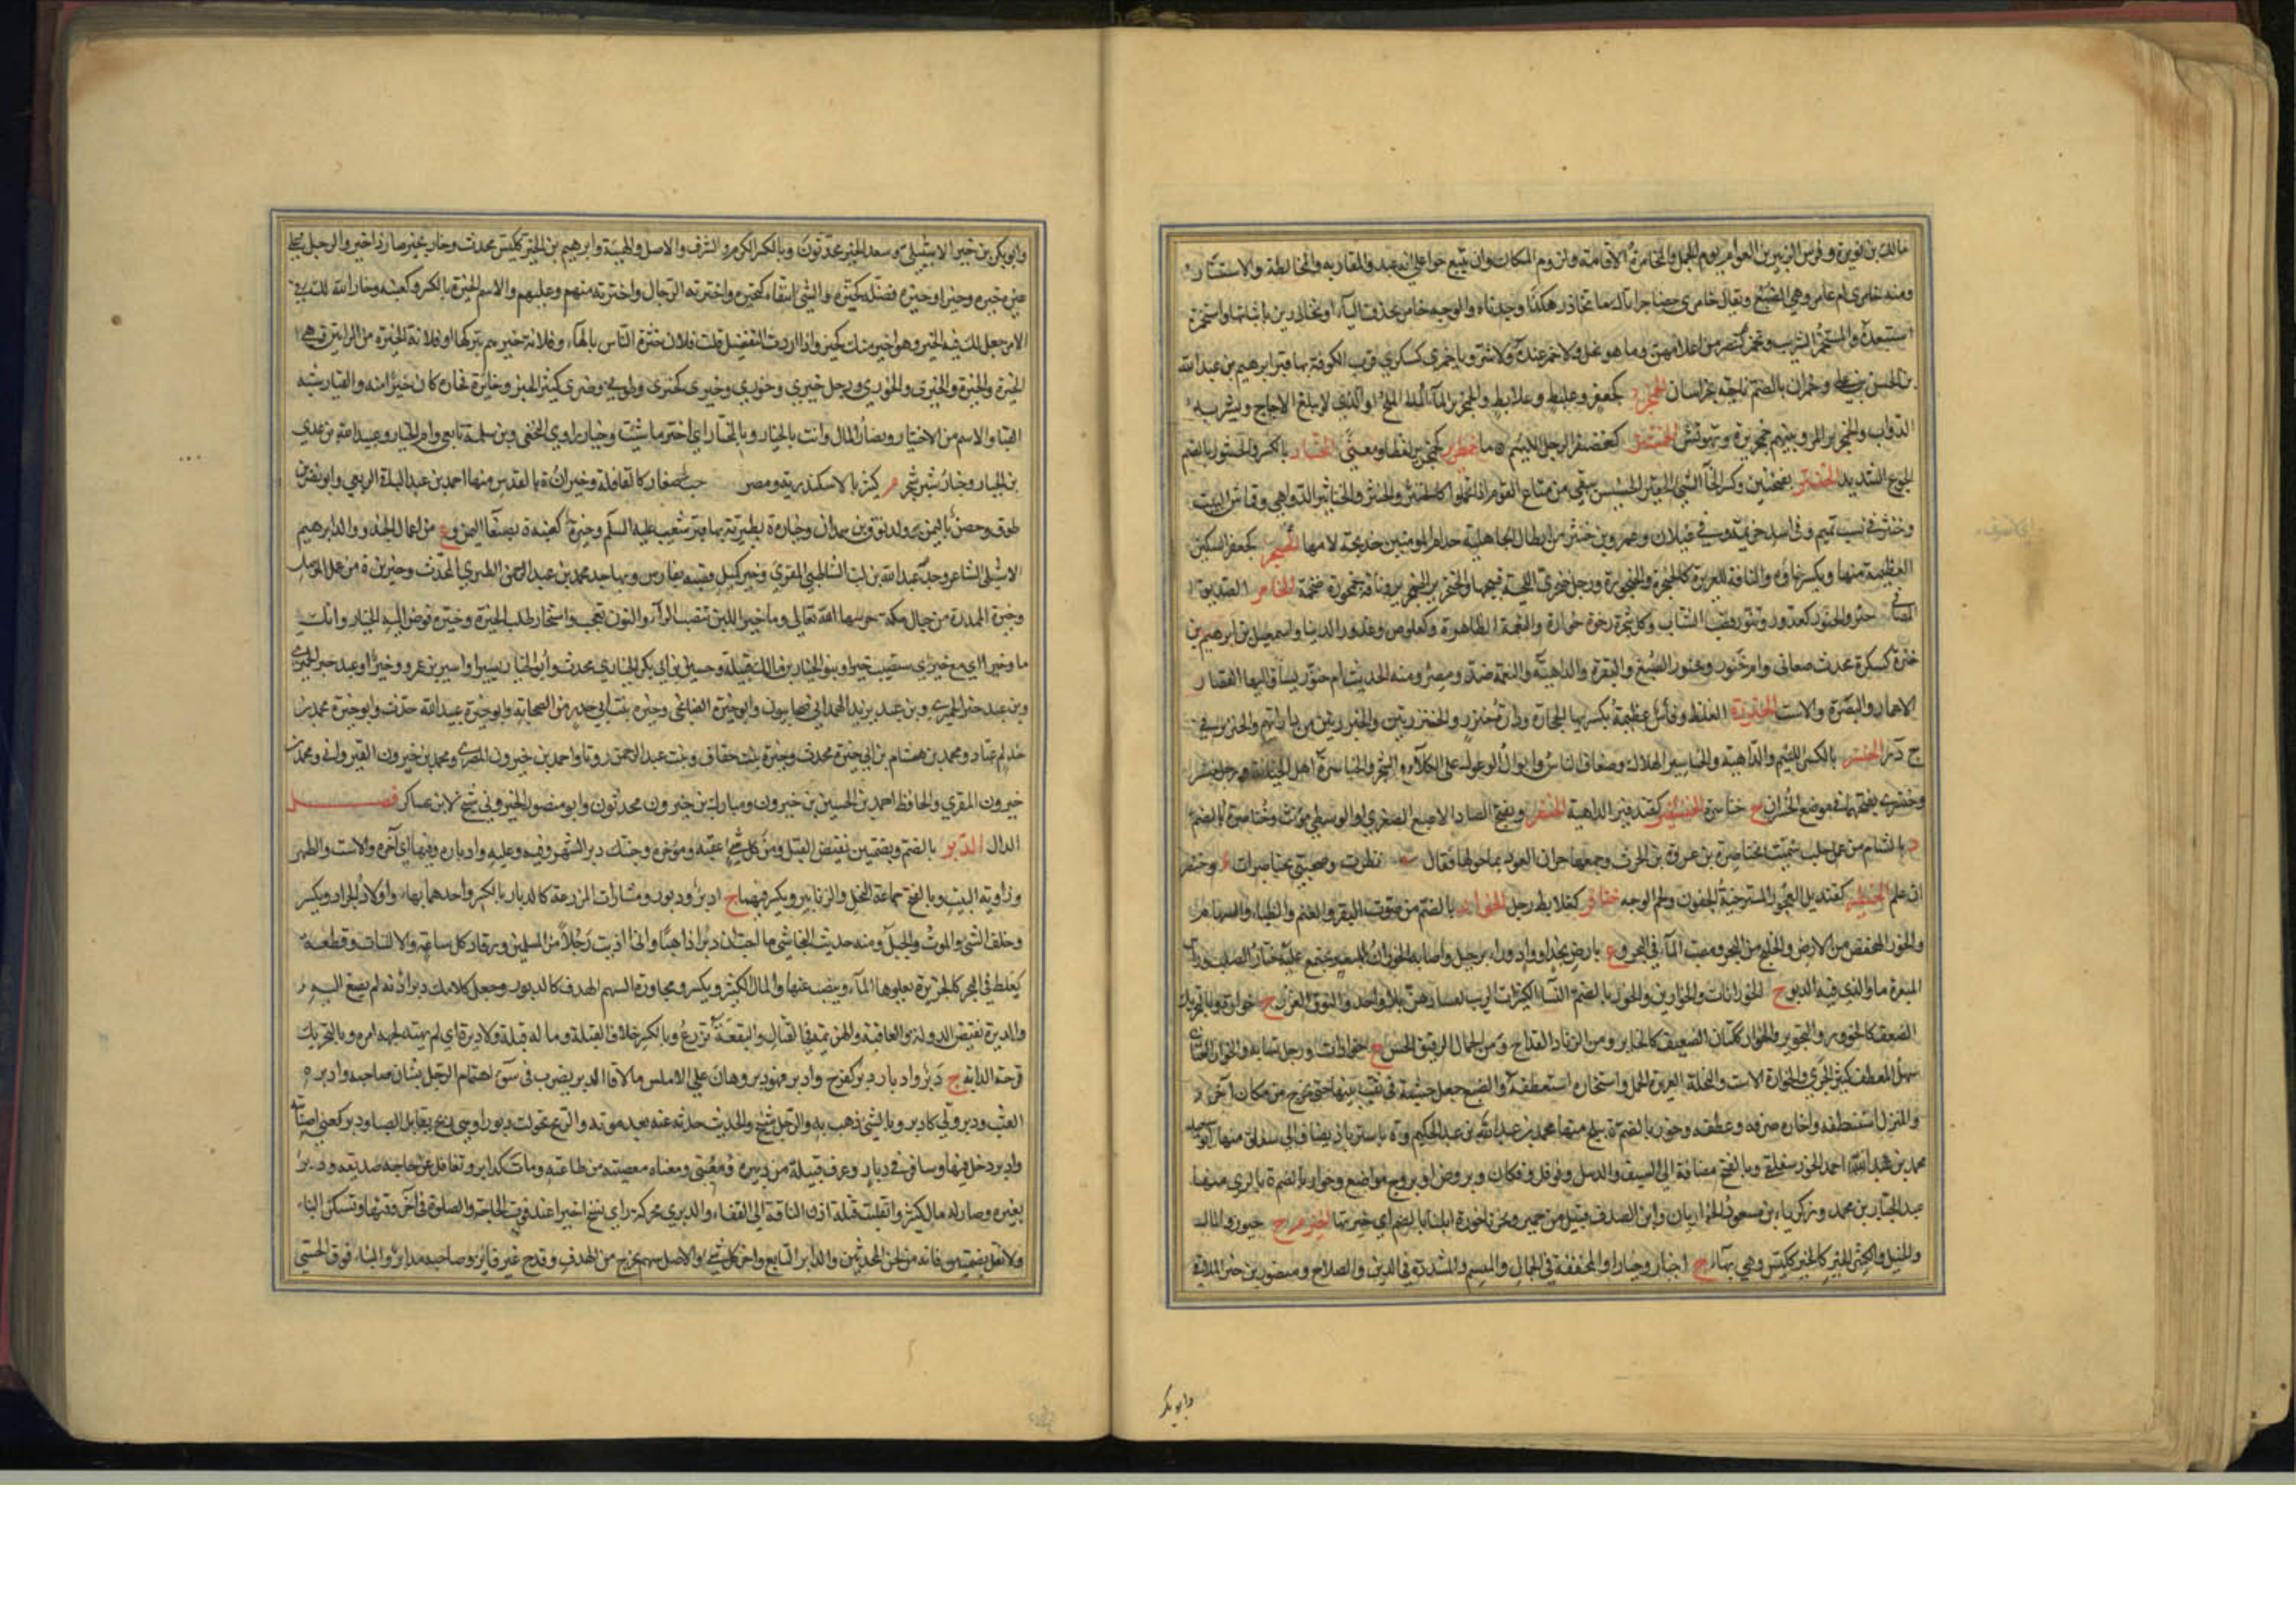 مالك بن نويرة وفرس الزبير بن العوام يوم الجمل والمخامرة الاقامة ولزوم المكان وان تبيع حرا على انه عبد والمقاربة والمخالطة والاستتار
ومنه خامري ام عامر وهي الضبع ويقال خامري حضاجر اتاك ما تحاذر هكذا وجدناه والوجه خامر بحذف الياء او تحاذرين باثباتها واستخمره
استعبده والمستخمر الشريب وتخمر كتنصر من اعلامهن وما هو بخل ولا خمر اي لا خير عنده ولا شر وباخمرى كسكرى قرب الكوفة بها قبر ابرهيم بن عبد الله
بن الحسن بن علي وخمران بالضم ناحية بخراسان الخمجر كجعفر وعلبط وعلابط والخمجرير الماء الملح او الذي لا يبلغ الاجاج ويشربه
الدواب والخمجرير المر وبينهم خمجريرة وتهويش الخمشتر كغضنفر الرجل اللئيم ماء خمطرير كخمجرير لفظا ومعنى الخنتار بالكسر والخنتور بالضم
الجوع الشديد الخنثر بفتحتين وكسر الثاء الشيء الحقير الخسيس يبقى من متاع القوم اذا تحملوا كالخنثر والخنثر والخناثير الدواهي وقماش البيت
وخنثر في نسب تميم وفي اسد خزيمة وفي قيس عيلان وعمرو بن خنثر من ابطال الجاهلية جد ام المومنين خديجة لامها الخنجر كجعفر السكين
العظيمة منها ويكسر خاؤه والناقة الغزيرة كالخنجرة والخنجورة ورجل خنجري اللحية قبيحها والخنجرير الخمجرير وناقة خنجورة ضخمة الخانر الصديق
المصافي ج خنر والخنور كعذور وتنور قصب النشاب وكل شجرة رخوة خوارة والنعمة الظاهرة وكعلوص وعذور الدنيا واسمعيل بن ابرهيم بن
خنرة كسكرة محدث صنعاني وام خنور وخنور الضبع والبقرة والداهية والنعمة ضد ومصر ومنه الحديث ام خنور يساق اليها القصار
الاعمار والبصرة والاست الخنزرة الغلظ وفأس عظيمة يكسر بها الحجارة ودارة خنزر والخنزرتين والخنزيرتين من داراتهم والخنزير في
خ ز ر الخنسر بالكسر اللئيم والداهية والخناسير الهلاك وضعاف الناس وابوال الوعول على الكلأ والشجر والخناسرة اهل الخيانة ورجل خنسر
وخنسري بفتحهما في موضع الخسران ج خناسرة الخنشفير كقندفير الداهية الخنصر وبفتح الصاد الاصبع الصغرى او الوسطى مؤنث وخناصرة بالضم
د بالشام من عمل حلب سميت بخناصرة بن عروة بن الحرث وجمعها جران العود بما حولها فقال نظرت وصحبتي بخناصرات وخنصر
ان علم الخنطير كقنديل العجوز المسترخية الجفون ولحم الوجه خنافر كعلابط رجل الخوار بالضم من صوت البقر والغنم والظباء والسهام
والخور المنخفض من الارض والخليج من البحر ومصب الماء في البحر وع بارض نجد او واد وراء برجيل واصابة الخوران للمبعر يجتمع عليه حتار الصلب وراس
المبعرة او الذي فيه الدبر ج الخورانات والخوارين والخور بالضم النساء الكثيرات الريب لفسادهن بلا واحد والنوق الغزر ج خوارة وبالتحريك
الضعف كالخؤور والتخوير والخوار ككتان الضعيف كالخائر ومن الزناد القداح ومن الجمال الرقيق الحسن ج خوارات ورجل نسابة وخوار العنان
سهل المعطف كثير الجري والخوارة الاست والنخلة الغزيرة الحمل واستخاره استعطفه والضبع جعل خشبة في ثقب بيتها حتى تخرج من مكان آخر
والمنزل استنظفه واخاره صرفه وعطفه وخور بالضم ة ببلخ منها محمد بن عبد الله بن عبد الحكيم وة باستراباذ يضاف الى سفلق منها ابو سعيد
محمد بن احمد الخور سفلقي وبالفتح مضافة الى السيف والديبل وفوفل وفكان وبروص او بروج مواضع وخوار بالضم ة بالري منها
عبد الجبار بن محمد وزكرياء بن مسعود الخواريان وابن الصدف قبيل من حمير ونحر ناخورة ابلنا بالضم اي خيرتها الخير م ج خيور والمال
والخيل والكثير الخير كالخير ككيس وهي بهاء ج اخيار وخيار او المخففة في الجمال والميسم والمشددة في الدين والصلاح ومنصور بن خير المالقي
وابو بكر
وابو بكر بن خير الاشبيلي وسعد الخير محدثون وبالكسر الكرم والشرف والاصل والهيئة وابرهيم بن الخير ككيس محدث وخار يخير صار ذا خير والرجل على
غيره خيرة وخيرا وخيرة فضله كخيره والشيء انتقاه كتخيره واخترته الرجال واخترته منهم وعليهم والاسم الخيرة بالكسر وكعنبة وخار الله لك في
الامر جعل لك فيه الخير وهو اخير منك كخير واذا اردت التفضيل قلت فلان خيرة الناس بالهاء وفلانة خيرهم بتركها او فلانة الخيرة من المراتين وهي
الخيرة والخيرة والخيرى والخورى ورجل خيري وخوري وخيرى كحيرى وطوبى وضيزى كثير الخير وخايره فخاره كان خيرا منه والخيار شبه
القثاء والاسم من الاختيار ونضار المال وانت بالخيار وبالمختار اي اختر ما شئت وخيار راوي النخعي وبن سلمة تابعي وام الخيار وعبيد الله بن عدي
بن الخيار وخيار شنبر شجر م كثير بالاسكندرية ومصر صغار كالقاقلة وخيران ة بالقدس منها احمد بن عبد الباقي الربعي وابو نصر بن
طوق وحصن باليمن وولد نوف بن همدان وخيارة ة بطبرية بها قبر شعيب عليه السلم وخيرة كعنبة ة بصنعاء اليمن وع من اعمال الجند ووالد ابرهيم
الاشبيلي الشاعر وجد عبد الله بن لب الشاطبي المقرئ وخير كميل قصبة بفارس وبهاء جد محمد بن عبد الرحمن الطبري المحدث وخيرين ة من عمل الموصل
وخيرة الممدرة من جبال مكة حرسها الله تعالى وما خير اللبن بنصب الراء والنون تعجب واستخار طلب الخيرة وخيره فوض اليه الخيار وانك
ما وخيرا اي مع خير اي ستصيب خيرا وبنو الخيار بن مالك قبيلة وحسين بن ابي بكر الخياري محدث وابو الخيار يسير او اسير بن عمرو وخير او عبد خير الحميري
وبن عبد خير الحميري وبن عبد يزيد الهمداني صحابيون وابو خيرة الصنابحي وخيرة بنت ابي حدرد من الصحابة وابو خيرة عبيد الله حدث وابو خيرة محمد بن
حذلم عباد ومحمد بن هشام بن ابي خيرة محدث وخيرة بنت خفاف وبنت عبد الرحمن روتا واحمد بن خيرون المصري ومحمد بن خيرون القيرواني ومحمد بن
خيرون المقري والحافظ احمد بن الحسين بن خيرون ومبارك بن خيرون محدثون وابو منصور الخيروني شيخ لابن عساكر فصل
الدال الدبر بالضم وبضمتين نقيض القبل ومن كل شيء عقبه ومؤخره وجئتك دبر الشهر وفيه وعليه وادباره وفيها اي آخره والاست والظهر
وزاوية البيت وبالفتح جماعة النحل والزنابير ويكسر فيهما ج ادبر ودبور ومشارات المزرعة كالدبار بالكسر واحدهما بهاء واولاد الجراد ويكسر
وخلف الشيء والموت والجبل ومنه حديث النجاشي ما احب ان لي دبرا ذهبا واني اذيت رجلا من المسلمين ورقاد كل ساعة والاكتتاب وقطعة
تغلظ في البحر كالجزيرة يعلوها الماء وينضب عنها والمال الكثير ويكسر ومجاوزة السهم الهدف كالدبور وجعل كلامك دبر اذنه لم يصغ اليه
والدبرة نقيض الدولة والعاقبة والهزيمة في القتال والبقعة تزرع وبالكسر خلاف القبلة وما له قبلة ولا دبرة اي لم يهتد لجهة امره وبالتحريك
قرحة الدابة ج دبر وادبار دبر كفرح وادبر فهو دبر وهان على الاملس ما لاقى الدبر يضرب في سوء اهتمام الرجل بشان صاحبه وادبره
القتب ودبر ولى كادبر وبالشيء ذهب به والرجل شيخ والحديث حدثه عنه بعد موته والريح تحولت دبورا وهي ريح تقابل الصبا ودبر كعني اصابته
وادبر دخل فيها وسافر في دبار وعرف قبيله من دبيره ومعناه معصيته من طاعته ومات كدابر وتغافل عن حاجة صديقه ودبر
بعيره وصار له مال كثير وانقلبت فتلة اذن الناقة الى القفاء والدبري محركة راي يسنح اخيرا عند فوت الحاجة والصلوة في آخر وقتها وتسكن الباء
ولا تقل بضمتين فانه من لحن المحدثين والدابر التابع واخر كل شيء والاصل وسهم يخرج من الهدف وقدح غير فائز وصاحبه مدابر والبناء فوق الحسي